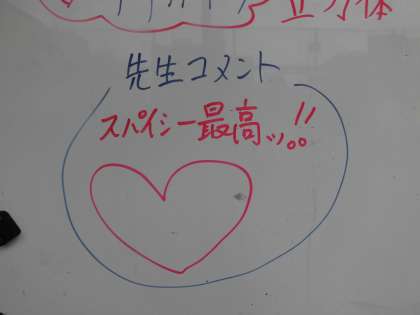 立方体
先生コメント
スパイシー最高ッ!!